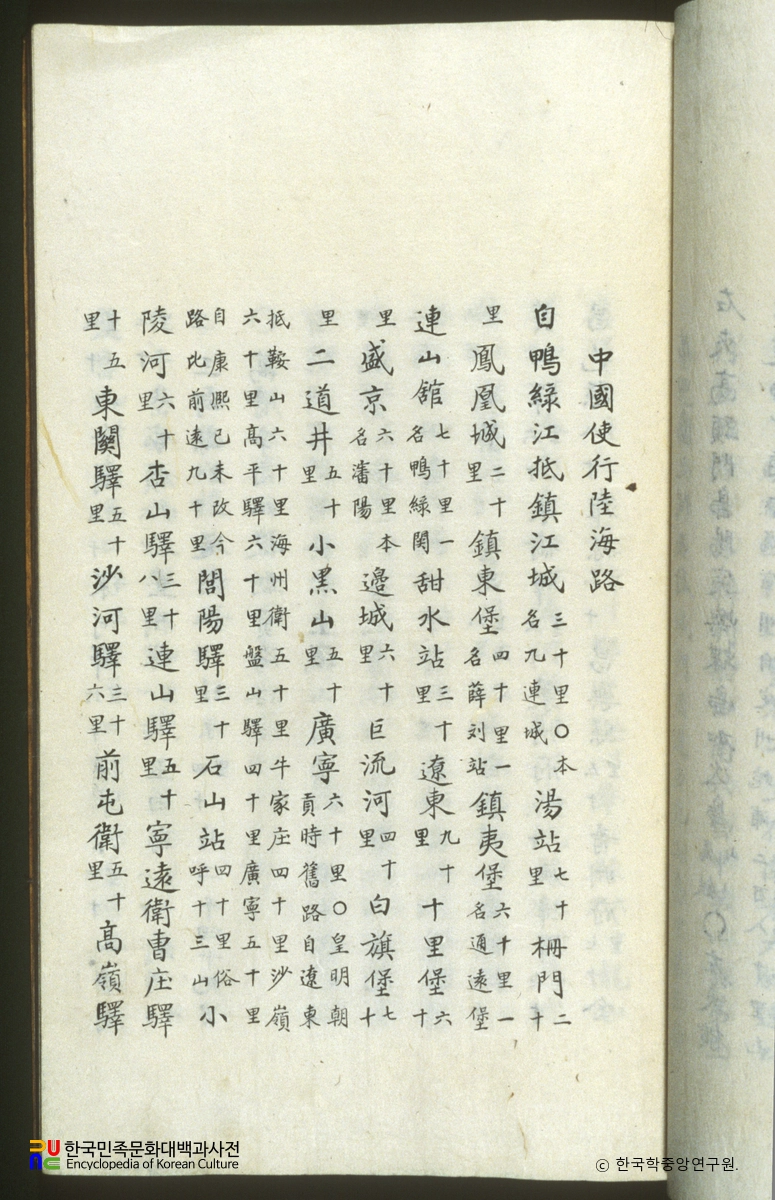 中國使行陸海路
自鴨綠江抵鎮江城三十里〇本名九連城湯站七十里柵門二十
里鳳凰城二十里鎮東堡四十里一名薛刘站鎮夷堡六十里一名通遠堡
連山舘七十里一名鴨綠関甜水站三十里遼東九十里十里堡六十
里盛京六十里本名瀋陽邊城六十里巨流河四十里白旗堡七十
里二道井五十里小黑山五十里廣寧六十里〇皇明朝貢時舊路自遼東
抵鞍山六十里海州衛五十里牛家庄四十里沙嶺六十里高平驛六十里盤山驛四十里廣寧五十里
自康熙己未改今路比前遠九十里閭陽驛三十里石山站四十里俗呼十三山小
陵河六十里杏山驛三十八里連山驛五十里寧遠衛曹庄驛
十五里東関驛五十里沙河驛三十六里前屯衛五十里高嶺驛
한국민족문화대백과사전
Encyclopedia of Korean Culture
ⓒ 한국학중앙연구원.